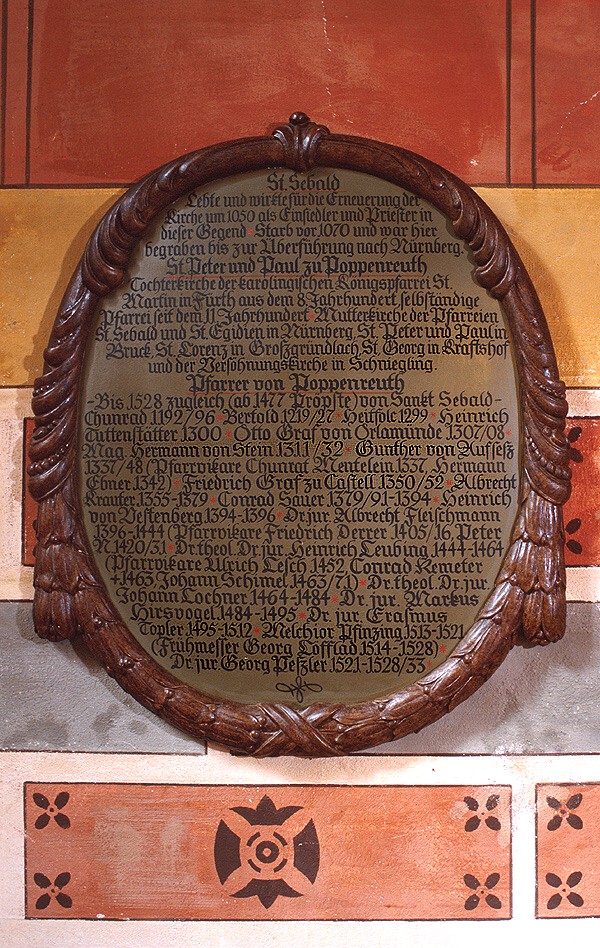 St. Sebald
Lebte und wirkte für die Erneuerung der
Kirche um 1050 als Einsiedler und Priester in
dieser Gegend * Starb vor 1070 und war hier
begraben bis zur Überführung nach Nürnberg.
St. Peter und Paul zu Poppenreuth
Tochterkirche der karolingischen Königspfarrei St.
Martin in Fürth aus dem 8. Jahrhundert, selbständige
Pfarrei seit dem 11. Jahrhundert * Mutterkirche der Pfarreien
St. Sebald und St. Egidien in Nürnberg, St. Peter und Paul in
Bruck, St. Lorenz in Großgründlach, St. Georg in Kraftshof
und der Versöhnungskirche in Schniegling.
Pfarrer von Poppenreuth
-Bis 1528 zugleich (ab 1477 Pröpste) von Sankt Sebald-
Chunrad 1192/96 * Bertold 1219/27 * Heitfolc 1299 * Heinrich
Tuttenstätter 1300 * Otto Graf von Orlamünde 1307/08 *
Mag. Hermann von Stein 1311/32 * Gunther von Aufseß
1337/48 (Pfarrvikare Chunrat Mentelein 1337, Hermann
Ebner 1342) * Friedrich Graf zu Castell 1350/52 * Albrecht
Krauter 1355-1379 * Conrad Sauer 1379/91-1394 * Heinrich
von Vestenberg 1394-1396 * Dr. jur. Albrecht Fleischmann
1396-1444 (Pfarrvikare Friedrich Derrer 1405/16, Peter
N. 1420/31 * Dr. theol. Dr. jur. Heinrich Leubing 1444-1464
(Pfarrvikare Ulrich Lesch 1452, Conrad Kemeter
+1463, Johann Schimel 1463/71) * Dr. theol. Dr. jur.
Johann Lochner 1464-1484 * Dr. jur. Markus
Hirsvogel 1484-1495 * Dr. jur. Erasmus
Topler 1495-1512 * Melchior Pfinzing 1513-1521
(Frühmesser Georg Löfflad 1514-1528) *
Dr. jur. Georg Peßler 1521-1528/33 *